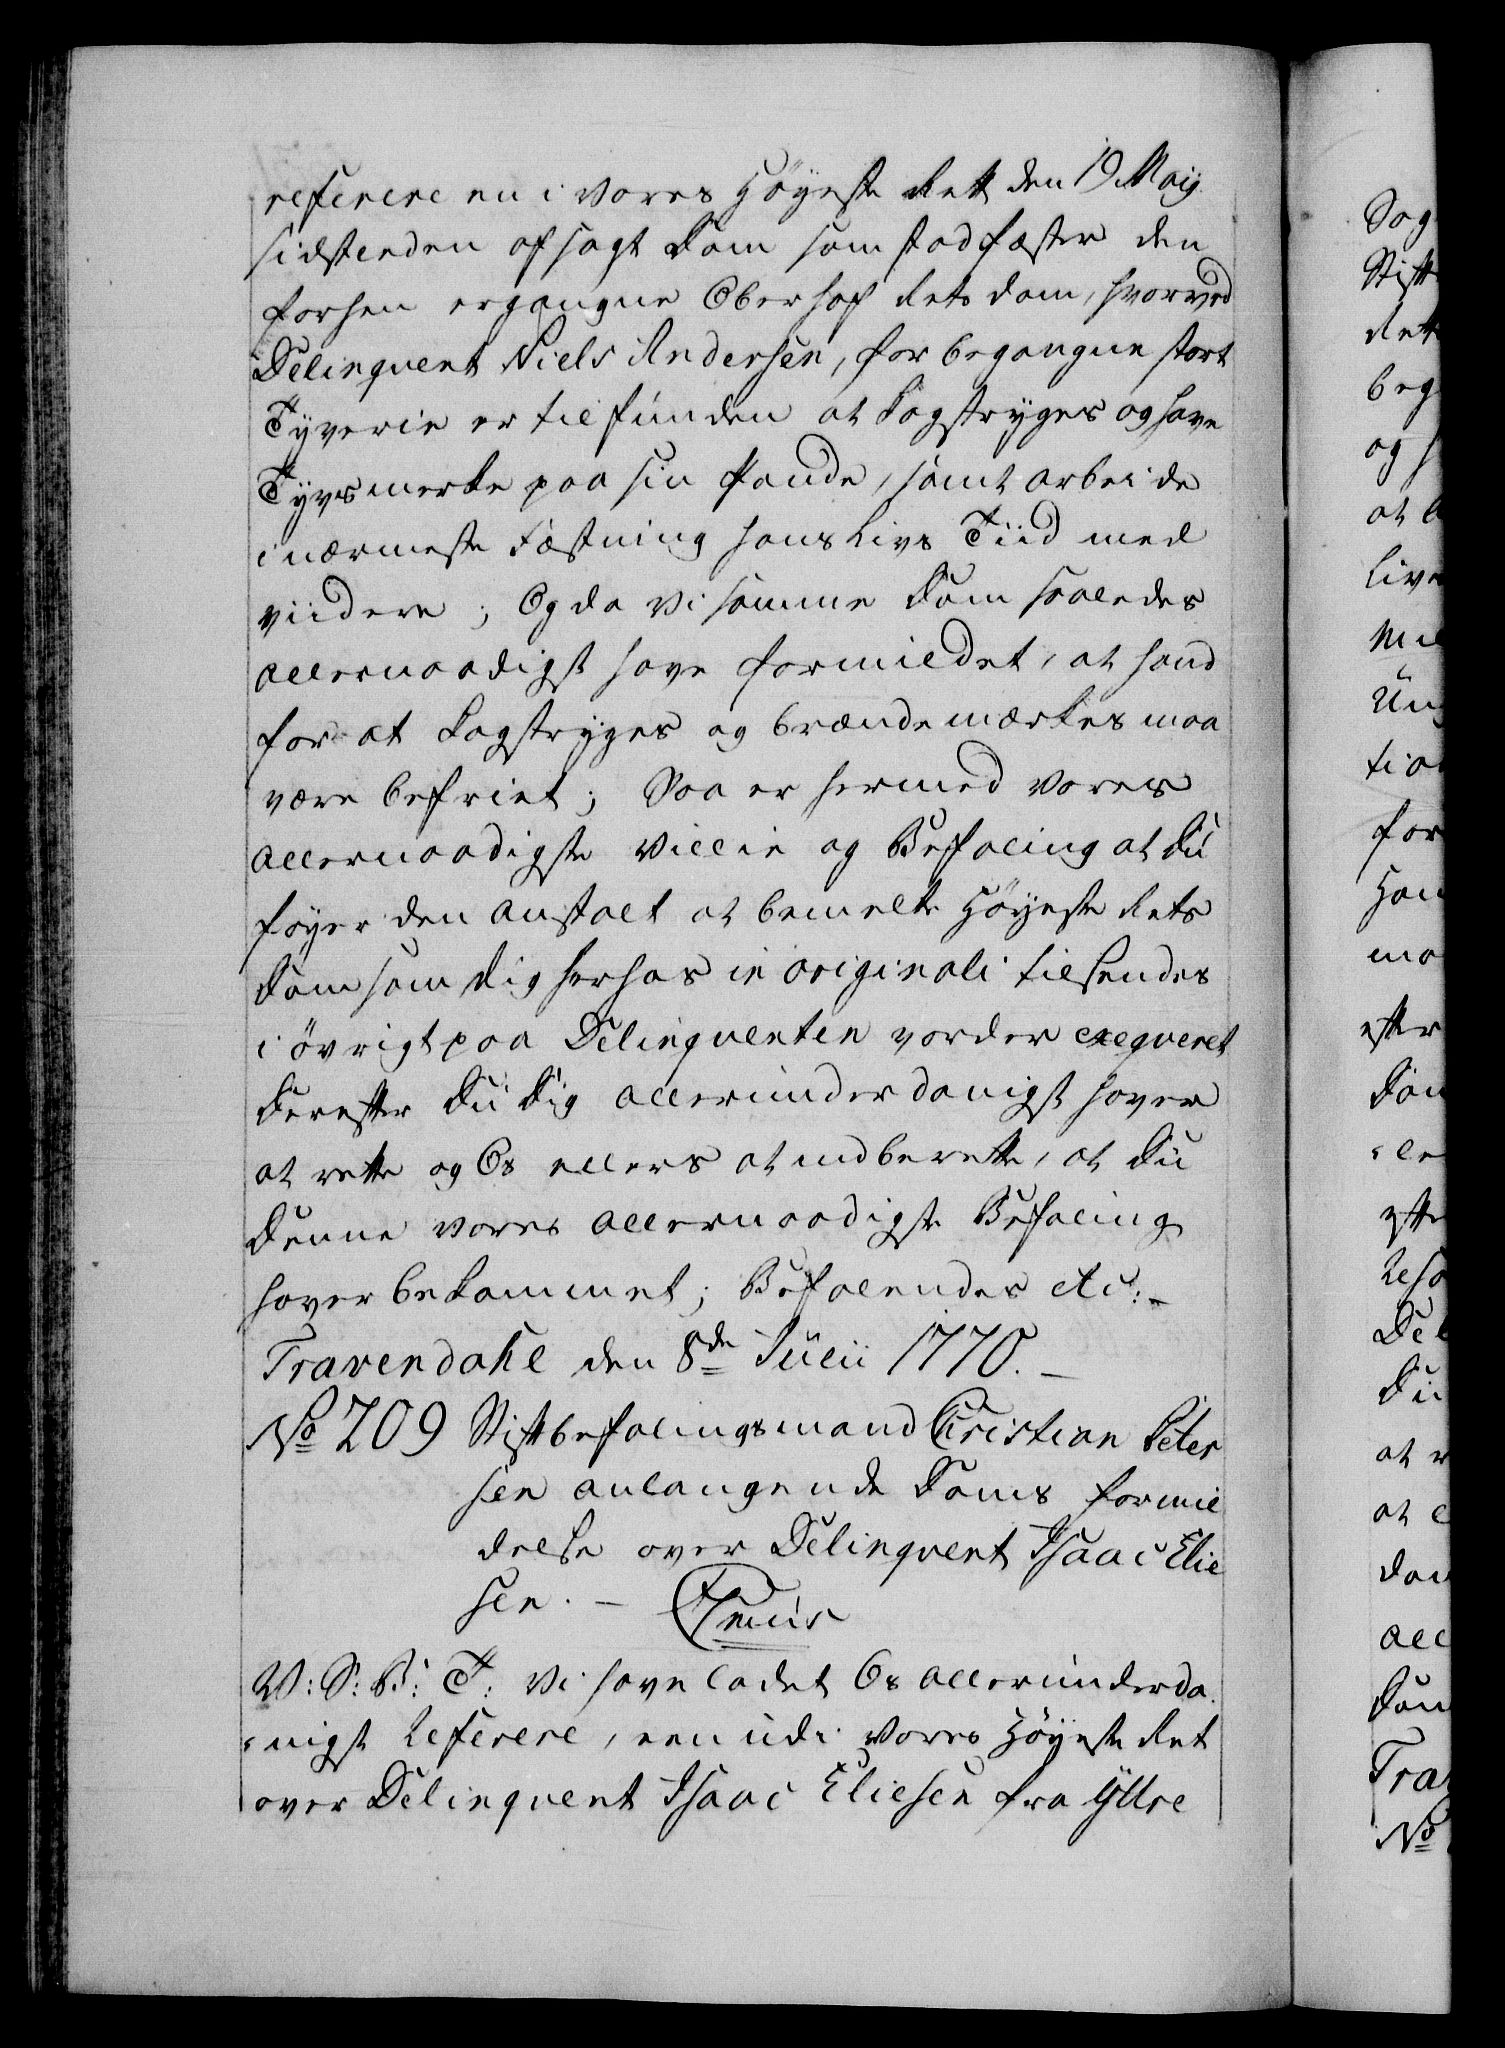 referere en i Vores Höyeste Rett den 19 Maij
sidstleden afsagt Dom som stadfæster den
forhen ergangne Oberhof Rets dom, hvorved
Delinqvent Niels Andersen, for begangne stort
Tyverie er tilfunden at Kagstryges og have
Tyvsmerke paa sin Pande, samt arbeide
i nærmeste Fæstning hans Livs Tiid med
viidere; Og da Vi samme Dom saaledes
allernaadigst have formildet, at hand
for at Kagstryges og brændemærkes maa
være befriet; Saa er hermed Vores
allernaadigste Villie og Befaling at Du
föyer den anstalt at bemelte Höyeste Rets
Dom som Dig herhos in originali tilsendes
i övrigt paa Delinqventen vorder exeqveret
Derefter Du Dig allerunderdanigst haver
at rette og Os ellers at indberette, at Du
Denne Vores allernaadigste Befaling
haver bekommet; Befalendes etc:_
Travendahl den 8de Julii 1770._
No 209 Stiftbefalingsmand Christian Peter
sen anlangende Doms formil
delse over Delinqvent Isaac Elie
sen._
W: S: B: T: Vi have ladet Os allerunderda
nigst Referere, een udi Vores Höyeste Ret
over Delinqvent Isaac Eliesen fra Yttre
Sag
Stift
Rett
beg
og
at
Live
Mil
Un
tio
for
Han
ma
efter
Dom
Reso
Del
Du
at
at
dan
all
Dom
Tra
No